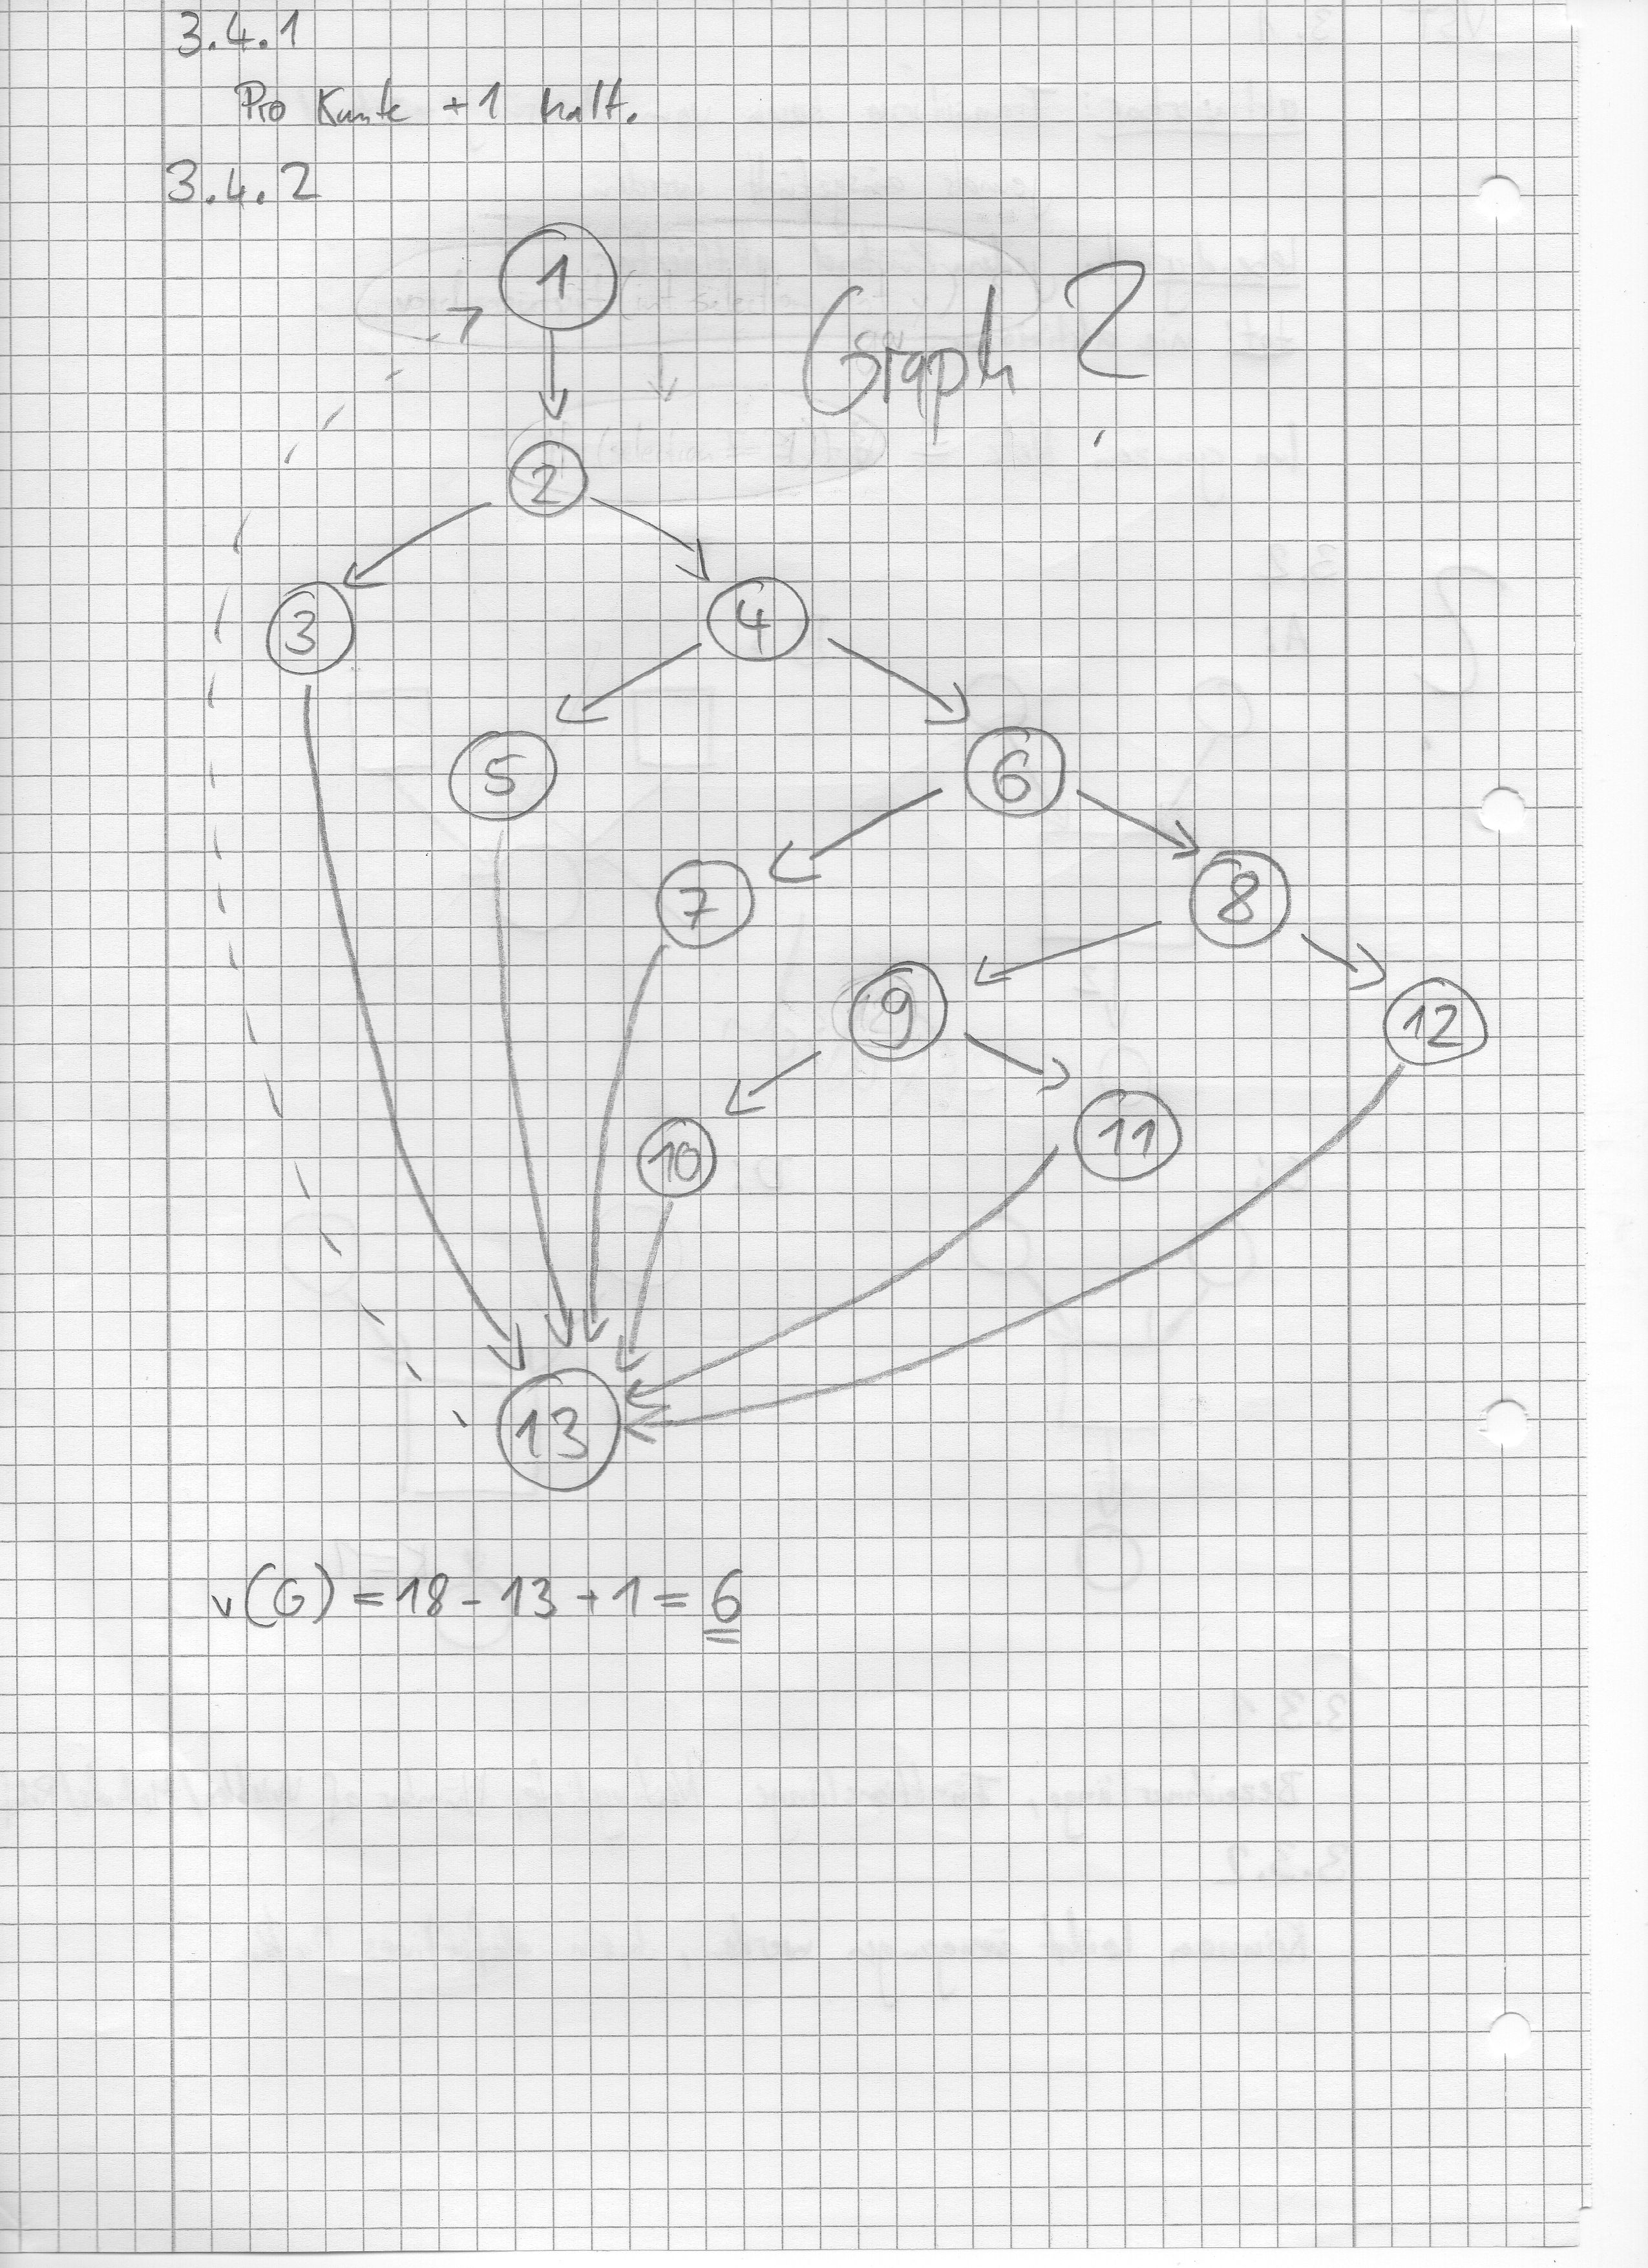 3.4.1
Pro Kante +1 halt.
3.4.2
1
Graph 2
2
3
4
5
6
7
8
9
12
10
11
13
v(G) = 18 - 13 + 1 = 6